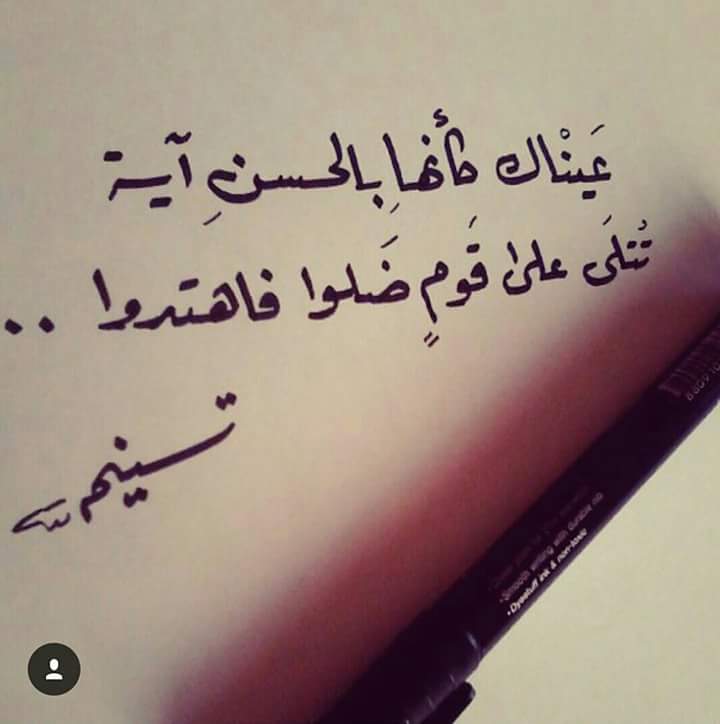 عَينْاك كأنها بِالحسنِ آية
تُتلَى على قَومٍ ضَلوا فاهتدوا ..
تسنيم
Smooth writing with durable nib
Dyestuff ink & non-toxic